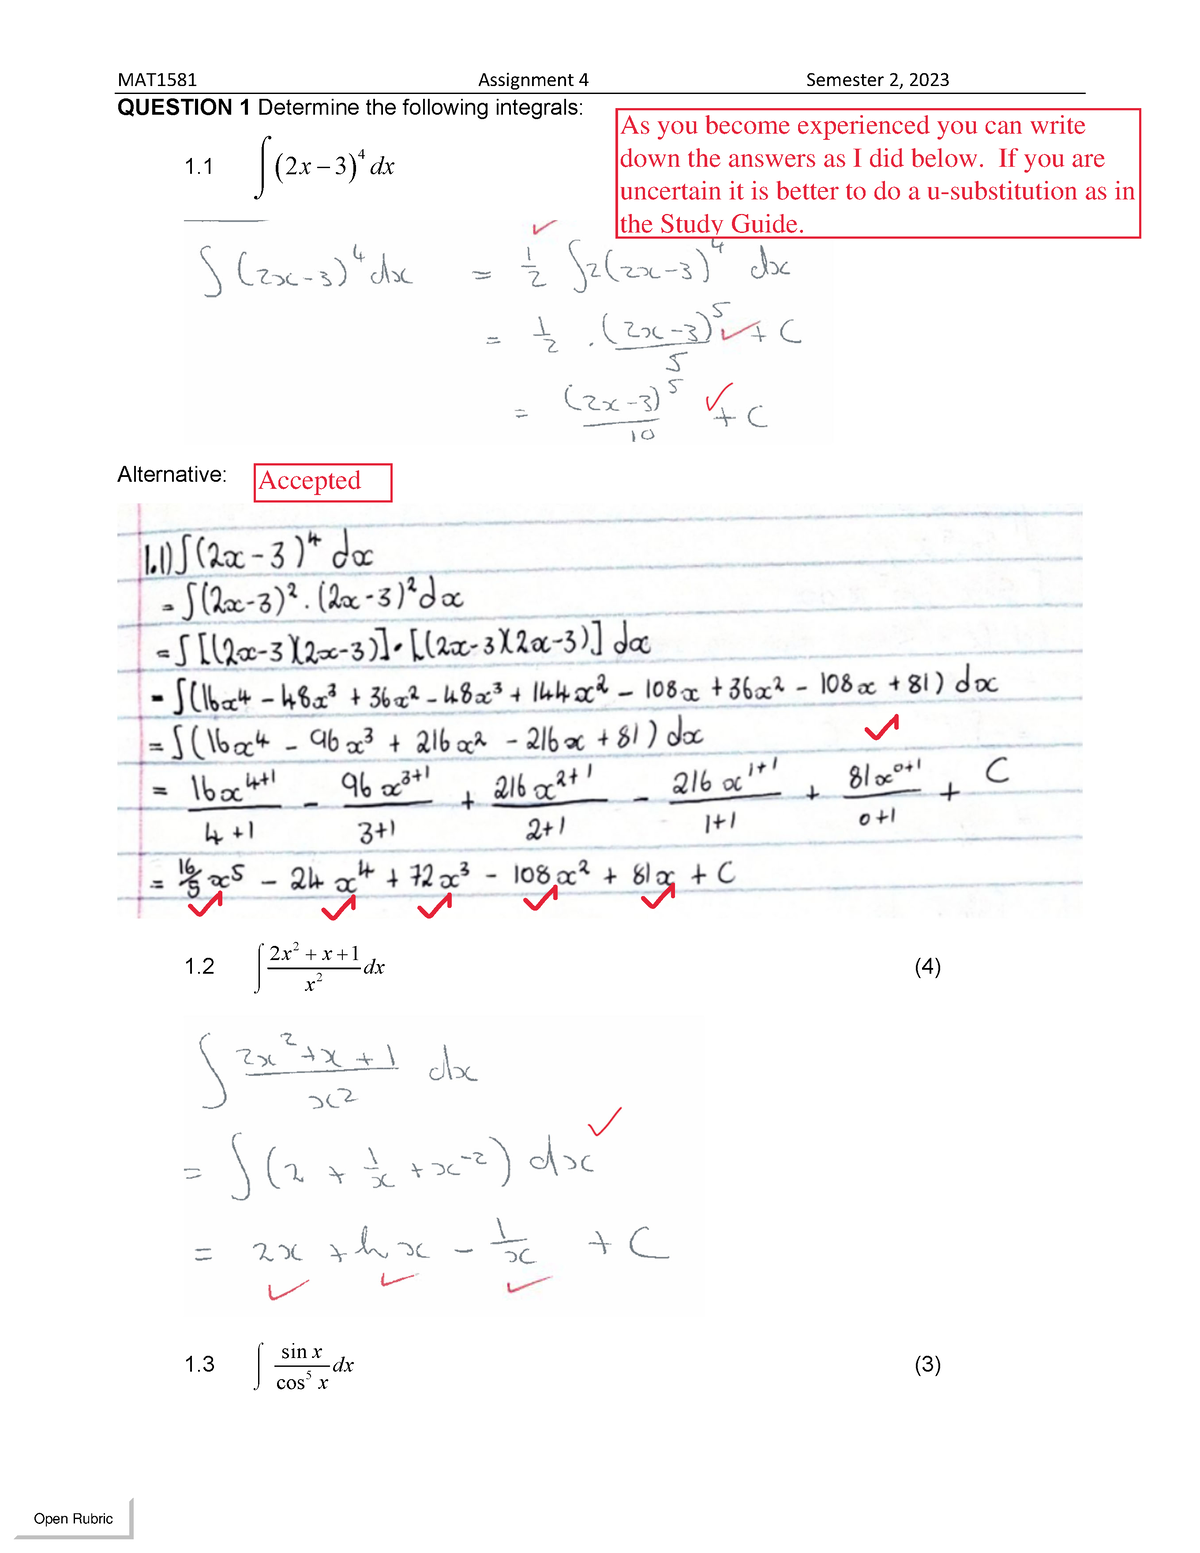 MAT1581 Assignment 4 Semester 2, 2023
QUESTION 1 Determine the following integrals:
As you become experienced you can write
down the answers as I did below. If you are
uncertain it is better to do a u-substitution as in
the Study Guide.
1.1 ∫(2x − 3)⁴ dx
∫(2x-3)⁴dx = 1/2 ∫2(2x-3)⁴ dx
= 1/2 . (2x-3)⁵/5 + C
= (2x-3)⁵/10 + C
Alternative: Accepted
1.1) ∫(2x - 3)⁴ dx
= ∫(2x-3)² . (2x-3)² dx
= ∫[(2x-3)(2x-3)] • [(2x-3)(2x-3)] dx
= ∫(16x⁴ - 48x³ + 36x² - 48x³ + 144x² - 108x + 36x² - 108x + 81) dx
= ∫(16x⁴ - 96x³ + 216x² - 216x + 81) dx
= 16x⁴⁺¹/4+1 - 96x³⁺¹/3+1 + 216x²⁺¹/2+1 - 216x¹⁺¹/1+1 + 81x⁰⁺¹/0+1 + C
= 16/5 x⁵ - 24x⁴ + 72x³ - 108x² + 81x + C
1.2 ∫ 2x² + x + 1/x² dx (4)
∫ 2x² + x + 1/x² dx
= ∫(2 + 1/x + x⁻²) dx
= 2x + ln x - 1/x + C
1.3 ∫ sin x/cos⁵ x dx (3)
Open Rubric